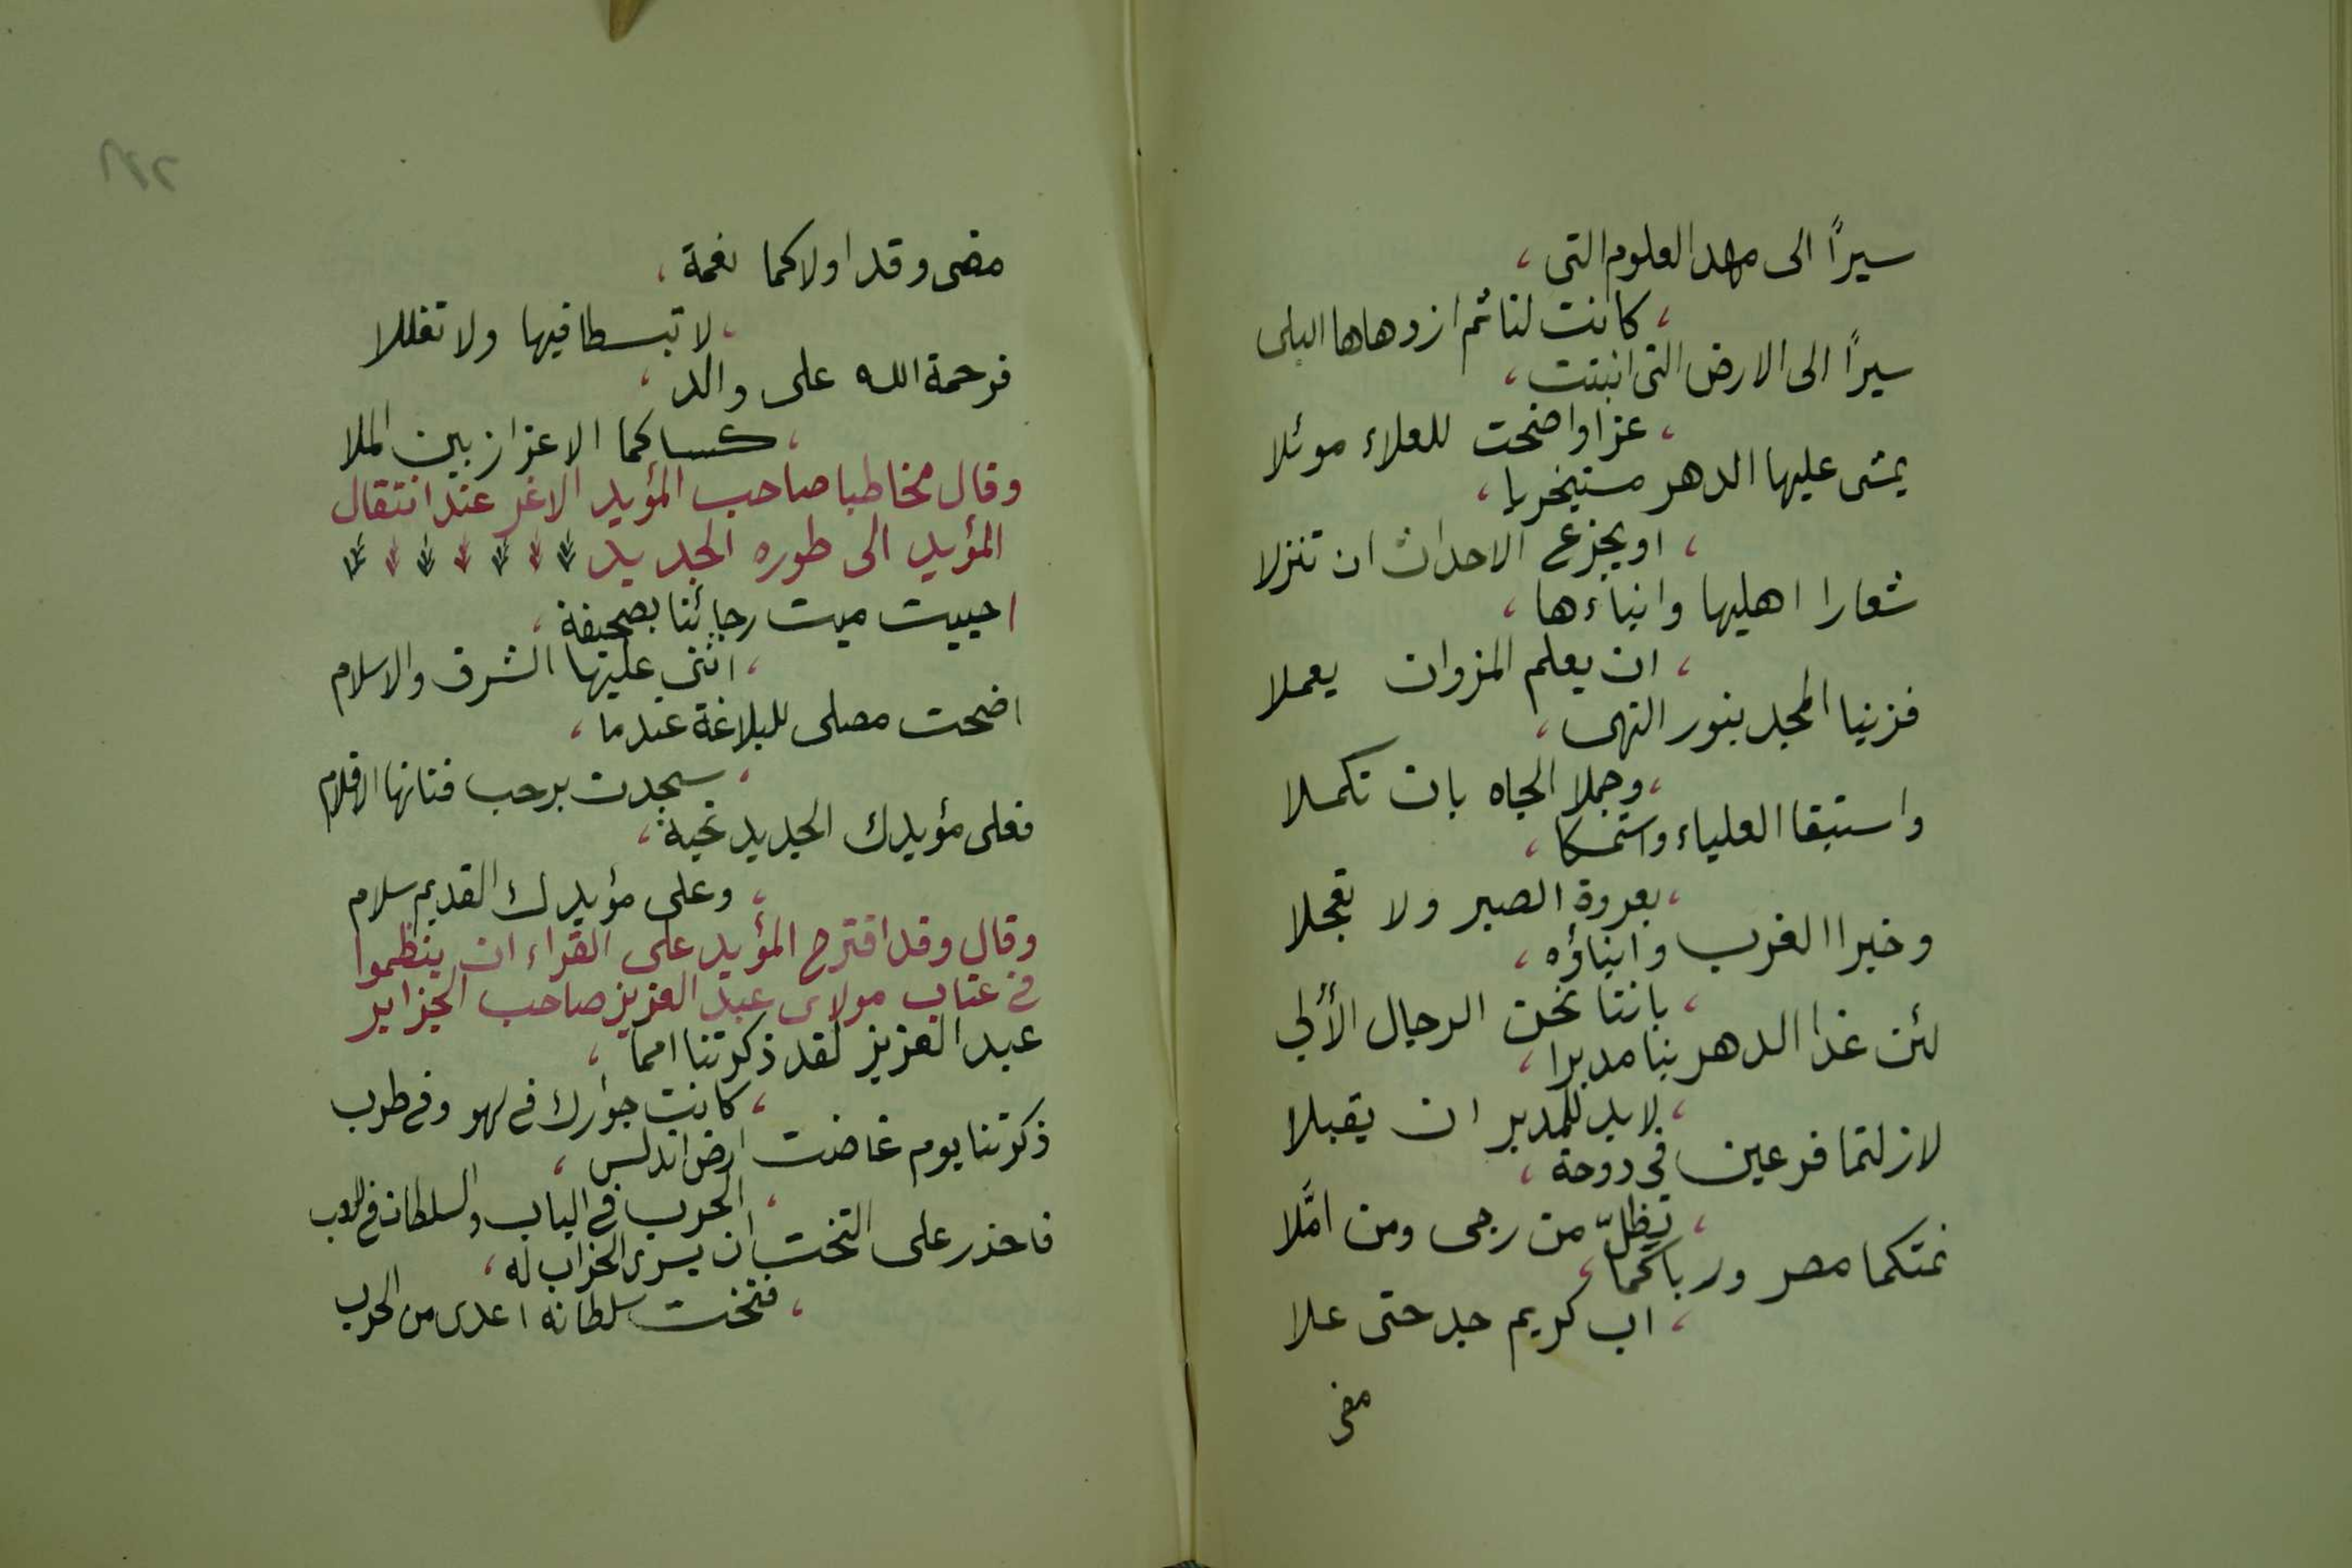 سيرًا الى مهد العلوم التى ،
، كانت لنا ثم ازدهاها البلى
سيرًا الى الارض التى انبتت ،
، عزا واضحت للعلاء موئلا
يمشى عليها الدهر مستخريا ،
، او يجزع الاحداث ان تنزلا
شعارا اهليها وابناءها ،
، ان يعلم المزوان يعملا
فزينا المجد بنور النهى ،
، وجملا الجاه بان تكملا
واستبقا العلياء واستمسكا ،
، بعروة الصبر ولا تعجلا
وخبرا الغرب وابناؤه ،
، باننا نحن الرجال الأُلى
لئن غدا الدهر بنا مدبرا ،
، لابد للمدبر ان يقبلا
لازلتما فرعين فى دوحة ،
، تظلّ من رجى ومن امَّلا
نمتكما مصر ورباكما ،
، اب كريم جد حتى علا
مضى
مضى وقد اولاكما نعمة ،
، لا تبسطا فيها ولا تغللا
فرحمة الله على والد ،
، كساكما الاعزاز بين الملا
وقال مخاطبا صاحب المؤيد الاغر عند انتقال
المؤيد الى طوره الجديد
احييت ميت رجائنا بصحيفة ،
، اثنى عليها الشرق والاسلام
اضحت مصلى للبلاغة عندما ،
، سجدت برحب فنائها الاقلام
فعلى مؤيدك الجديد تحية ،
، وعلى مؤيدك القديم سلام
وقال وقد اقترح المؤيد على القراء ان ينظموا
فى عتاب مولاى عبد العزيز صاحب الجزاير
عبد العزيز لقد ذكرتنا امما ،
، كانت جوارك فى لهو وفى طرب
ذكرتنا يوم غاضت ارض اندلس ،
، الحرب فى الباب والسلطان فى اللعب
فاحذر على التخت ان يسرى الخراب له ،
، فتخت سلطانه اعدى من الحرب